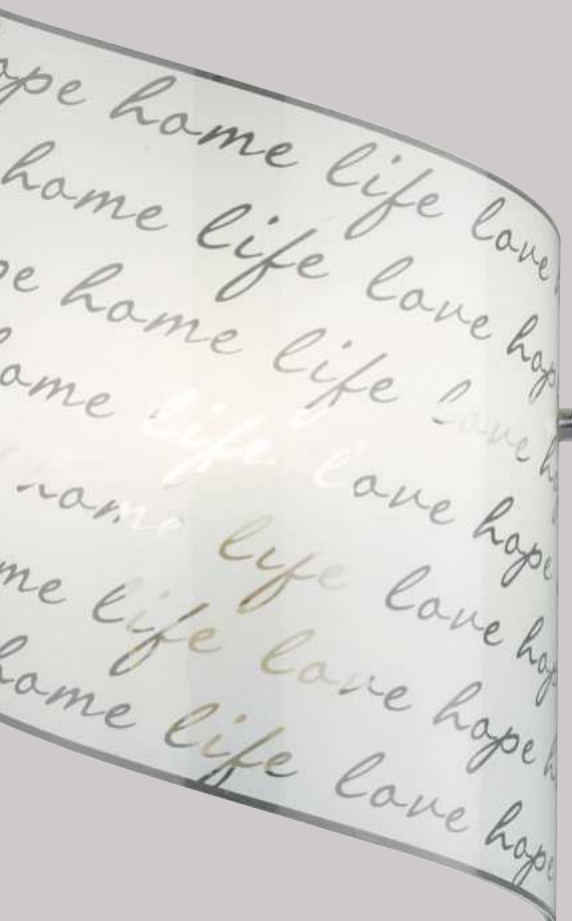 ope home life love
home life love hop
pe home life love h
ome life love hope
home life love hop
me life love hope h
home life love hope